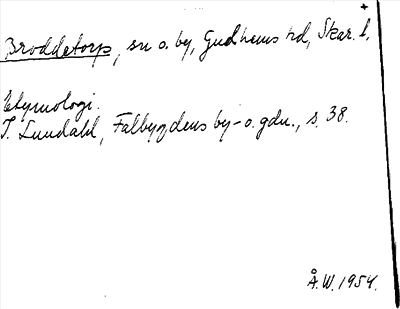 +
Broddetorp, sn o. by, Gudhems hd, Skar. l.
Etymologi.
I. Lundahl, Falbygdens by- o. gdn., s. 38.
Å.W. 1954.